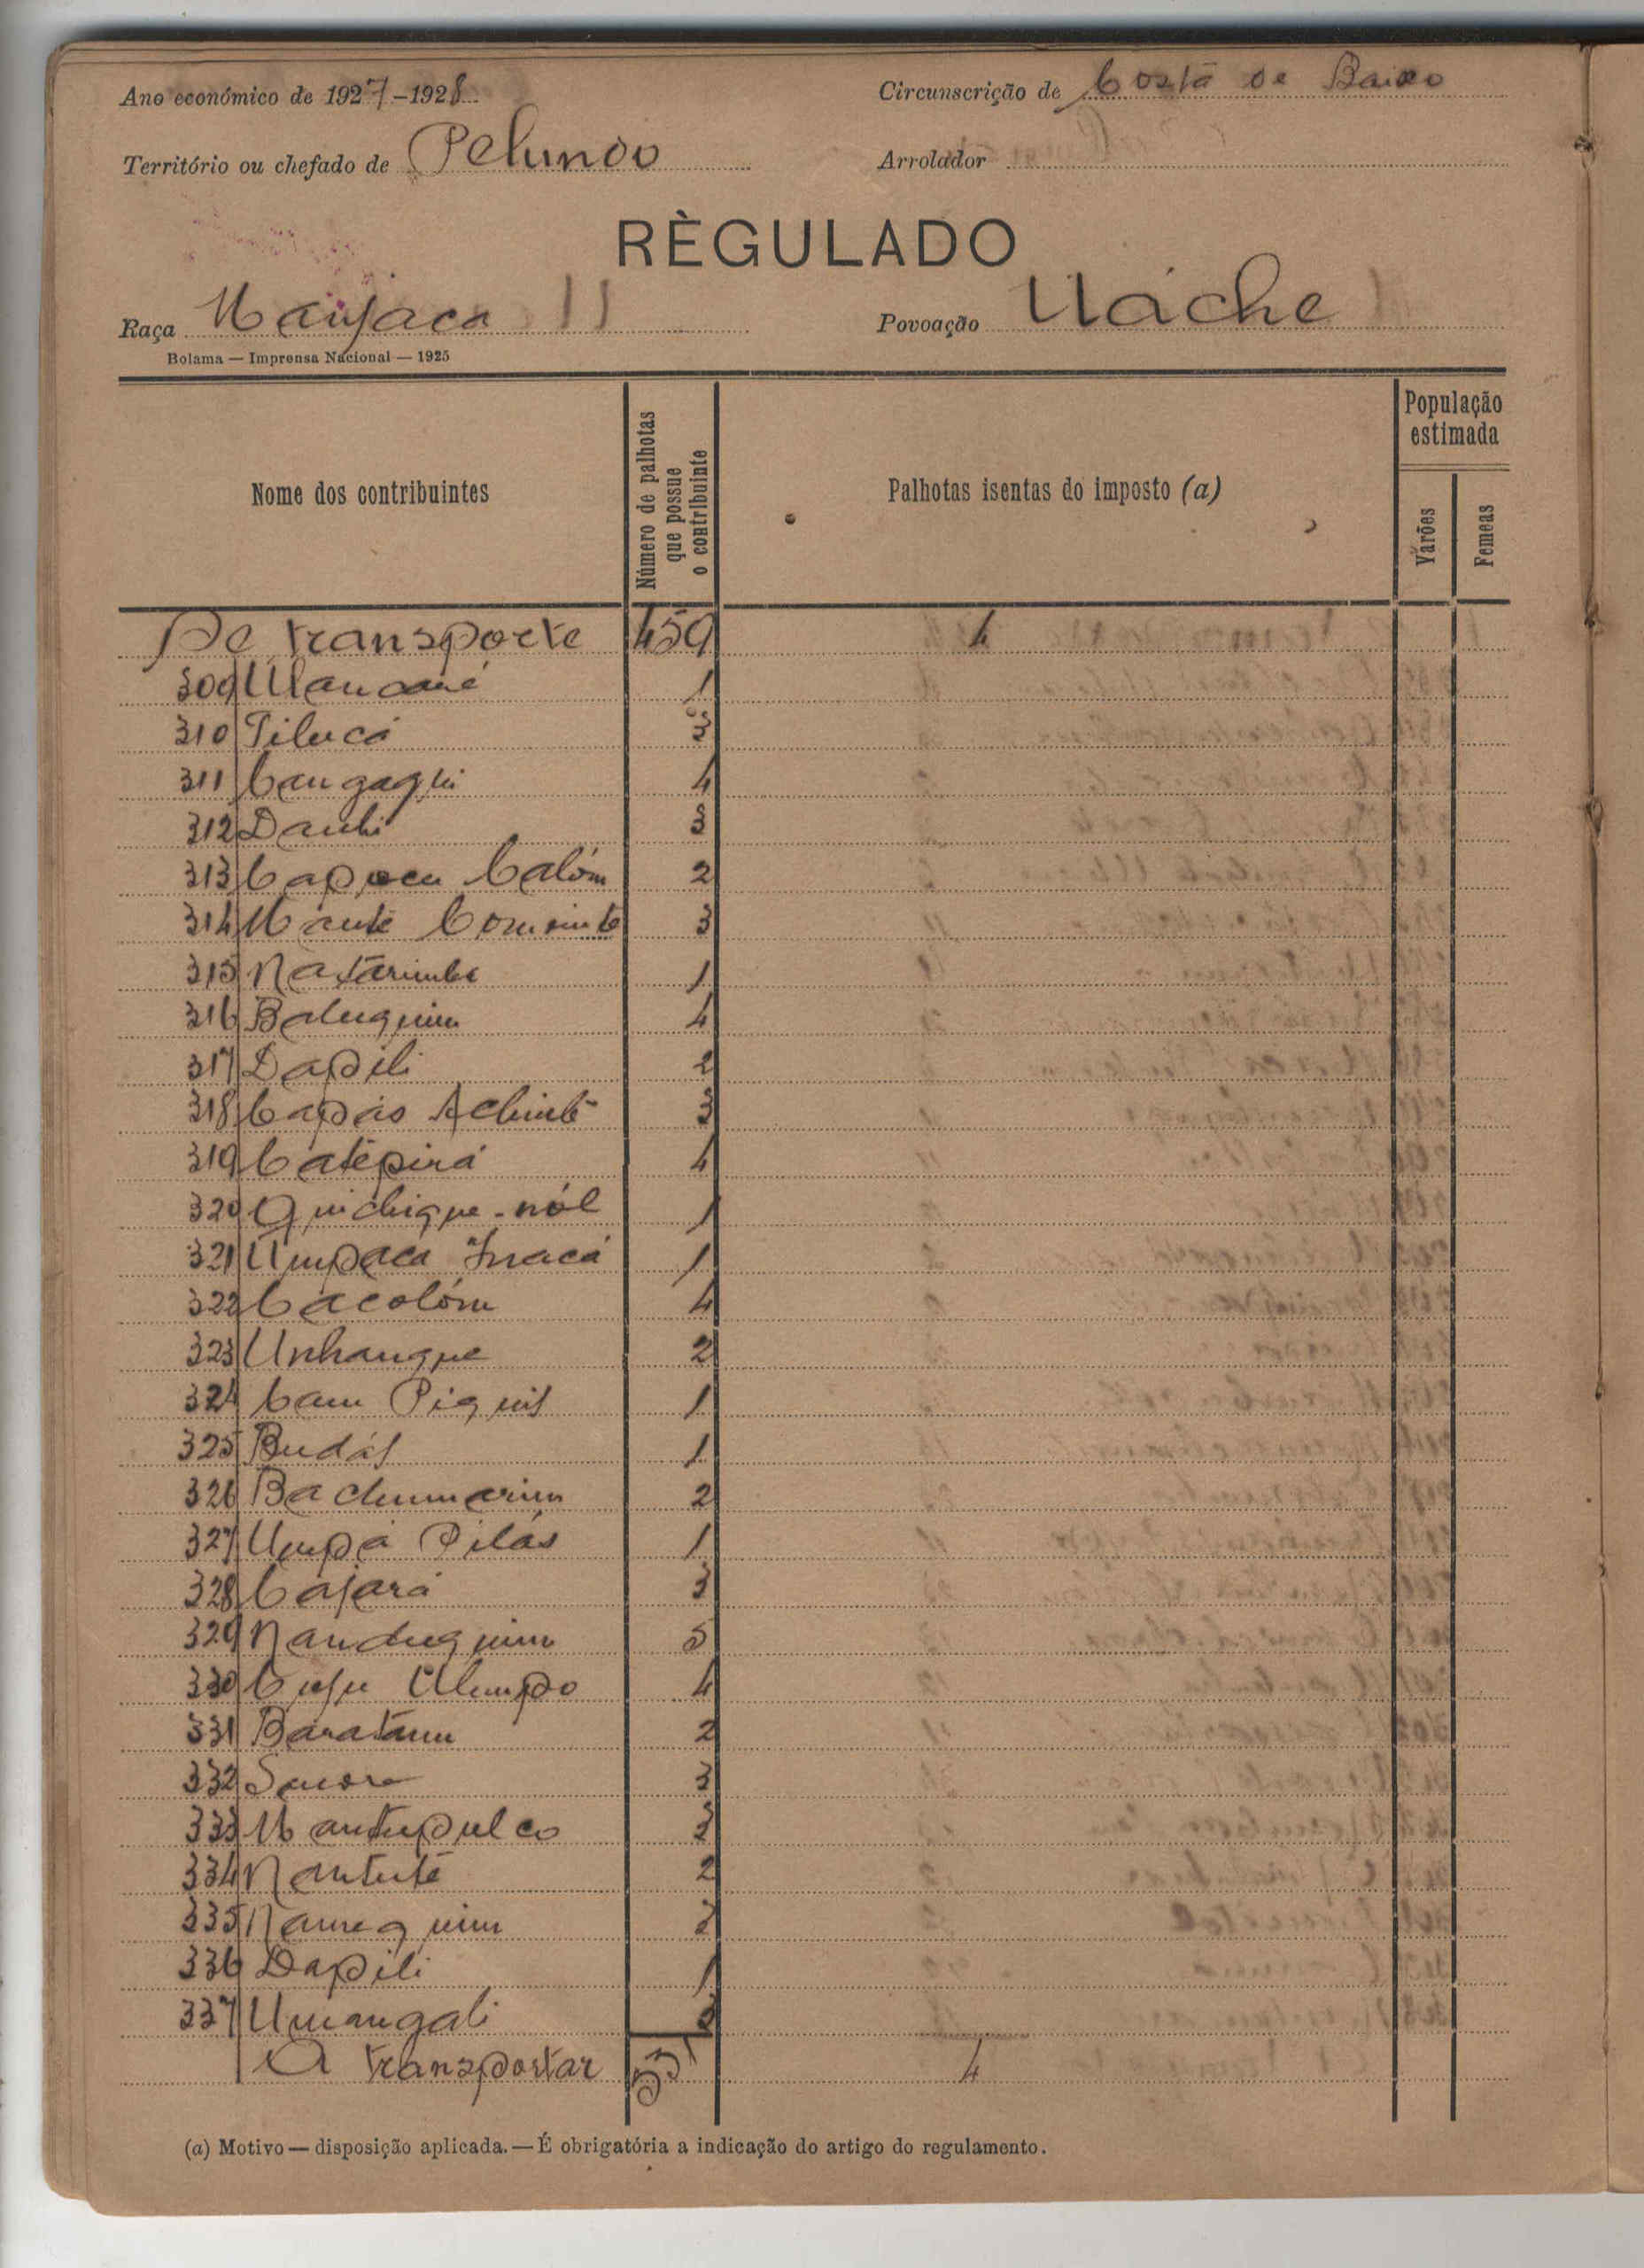 Ano económico de 1927-1928
Circunscrição de Costa de Baixo
Território ou chefado de Pelundo
Arrolador
RÈGULADO
Raça Manjaca
Povoação Uáche
Bolama — Imprensa Nacional — 1925
Nome dos contribuintes
Número de palhotas que possue o contribuinte
Palhotas isentas do imposto (a)
População estimada
Varões
Femeas
De transporte 459 4
309 1
310 Tilucá 3
311 Cangaghi 4
312 3
313 Capocu Calóm 2
314 Mante 3
315 Natarimbe 1
316 Baluquim 4
317 Dapili 2
318 Capás 3
319 Catépirá 4
320 Quichique-nól 1
321 Umpaca Inacá 1
322 Cacolóm 4
323 Unhangue 2
324 Cam Piquis 1
325 Budás 1
326 2
327 Umpá Pilás 1
328 Cajará 3
329 Nanduquim 5
330 4
331 Baratam 2
332 3
333 Mantupulco
334 Nantuté 2
335 Namequim
336 Dapili 1
337 Umangali
A transportar 531 4
(a) Motivo — disposição aplicada. — É obrigatória a indicação do artigo do regulamento.